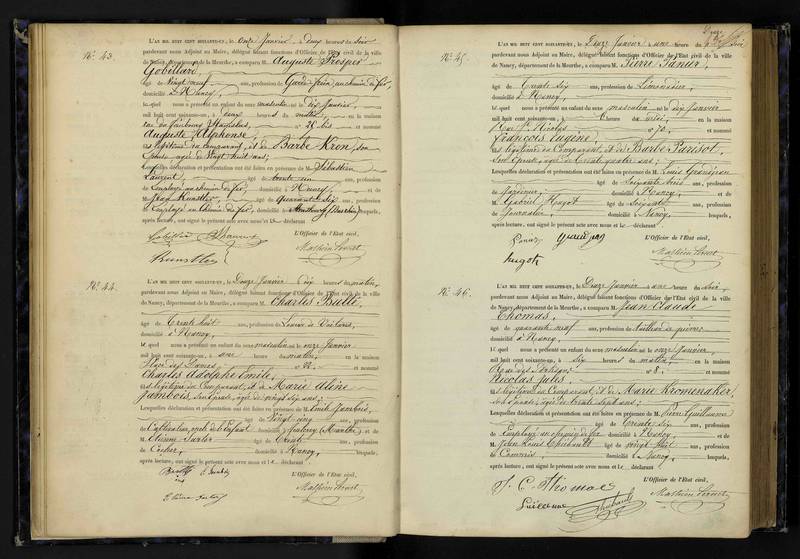 N° 43.
L'AN MIL HUIT CENT SOIXANTE-UN, le onze Janvier à deux heures du soir
pardevant nous Adjoint au Maire, délégué faisant fonctions d'Officier de l'État civil de la ville
de Nancy, département de la Meurthe, a comparu M. Auguste Prosper
Gobillard,
âgé de vingt neuf ans, profession de Garde frein au chemin de fer,
domicilié à Nancy,
lequel nous a présenté un enfant du sexe masculin né le dix Janvier,
mil huit cent soixante-un, à deux heures du matin, en la maison
rue du faubourg Stanislas, n° 26 bis et nommé
Auguste Alphonse,
fils légitime du comparant, et de Barbe Kron, son
épouse âgée de vingt huit ans;
Lesquelles déclaration et présentation ont été faites en présence de M. Sébastien
Laurent, âgé de trente un ans, profession
d'employé au chemin de fer, domicilié à Nancy, et de
M. Jean Kunstler, âgé de quarante six ans, profession
d'Employé au chemin de fer, domicilié à Strasbourg (Bas-rhin) lesquels,
après lecture, ont signé le présent acte avec nous et le déclarant
L'Officier de l'État civil,
Kunstler
N° 44.
L'AN MIL HUIT CENT SOIXANTE-UN, le Douze Janvier à dix heures du matin,
pardevant nous Adjoint au Maire, délégué faisant fonctions d'Officier de l'État civil de la ville
de Nancy, département de la Meurthe, a comparu M. Charles Bulle,
âgé de trente huit ans, profession de Loueur de Voitures,
domicilié à Nancy,
lequel nous a présenté un enfant du sexe masculin né le onze Janvier
mil huit cent soixante-un, à une heure du matin, en la maison
Place des Dames n°
Charles Adolphe Emile,
fils légitime du Comparant, et de Marie Aline
Jambois, son épouse, âgée de vingt six ans;
Lesquelles déclaration et présentation ont été faites en présence de M. Emile Jambois,
âgé de vingt cinq ans, profession
de Cultivateur, oncle de l'enfant domicilié à (Meurthe) et de
M. Etienne âgé de trente ans, profession
de Cocher, domicilié à Nancy, lesquels,
après lecture, ont signé le présent acte avec nous et le déclarant
L'Officier de l'État civil,
N° 45.
L'AN MIL HUIT CENT SOIXANTE-UN, le Douze Janvier à une heure du soir
pardevant nous Adjoint au Maire, délégué faisant fonctions d'Officier de l'État civil de la ville
de Nancy, département de la Meurthe, a comparu M. Pierre
âgé de trente six ans, profession de Limonadier,
domicilié à Nancy,
lequel nous a présenté un enfant du sexe masculin né le dix Janvier
mil huit cent soixante-un, à heures du soir, en la maison
Rue St Nicolas n° 70, et nommé
François Eugène
fils légitime du Comparant, et de Barbe Parisot,
son épouse, âgée de trente quatre ans;
Lesquelles déclaration et présentation ont été faites en présence de M. Louis Grandjean
âgé de soixante trois ans, profession
de Jardinier, domicilié à Nancy, et de
M. Gabriel Hugot âgé de soixante ans, profession
de Journalier, domicilié à Nancy, lesquels,
après lecture, ont signé le présent acte avec nous et le déclarant
L'Officier de l'État civil,
Hugot
N° 46.
L'AN MIL HUIT CENT SOIXANTE-UN, le Douze Janvier à une heure du soir,
pardevant nous Adjoint au Maire, délégué faisant fonctions d'Officier de l'État civil de la ville
de Nancy, département de la Meurthe, a comparu M. Jean Claude
Thomas,
âgé de quarante neuf ans, profession de Tailleur de pierres
domicilié à Nancy,
lequel nous a présenté un enfant du sexe masculin né le onze Janvier,
mil huit cent soixante-un, à six heures du matin, en la maison
Rue des n° 8. et nommé
Nicolas Jules,
fils légitime du Comparant, et de Marie Kromenaker,
son épouse, âgée de trente sept ans;
Lesquelles déclaration et présentation ont été faites en présence de M. Pierre Guillaume
âgé de trente six ans, profession
de Employé au chemin de fer domicilié à Nancy, et de
M. Jean Louis Thibault âgé de vingt huit ans, profession
de domicilié à Nancy, lesquels,
après lecture, ont signé le présent acte avec nous et le déclarant
L'Officier de l'État civil,
J. C. Thomas